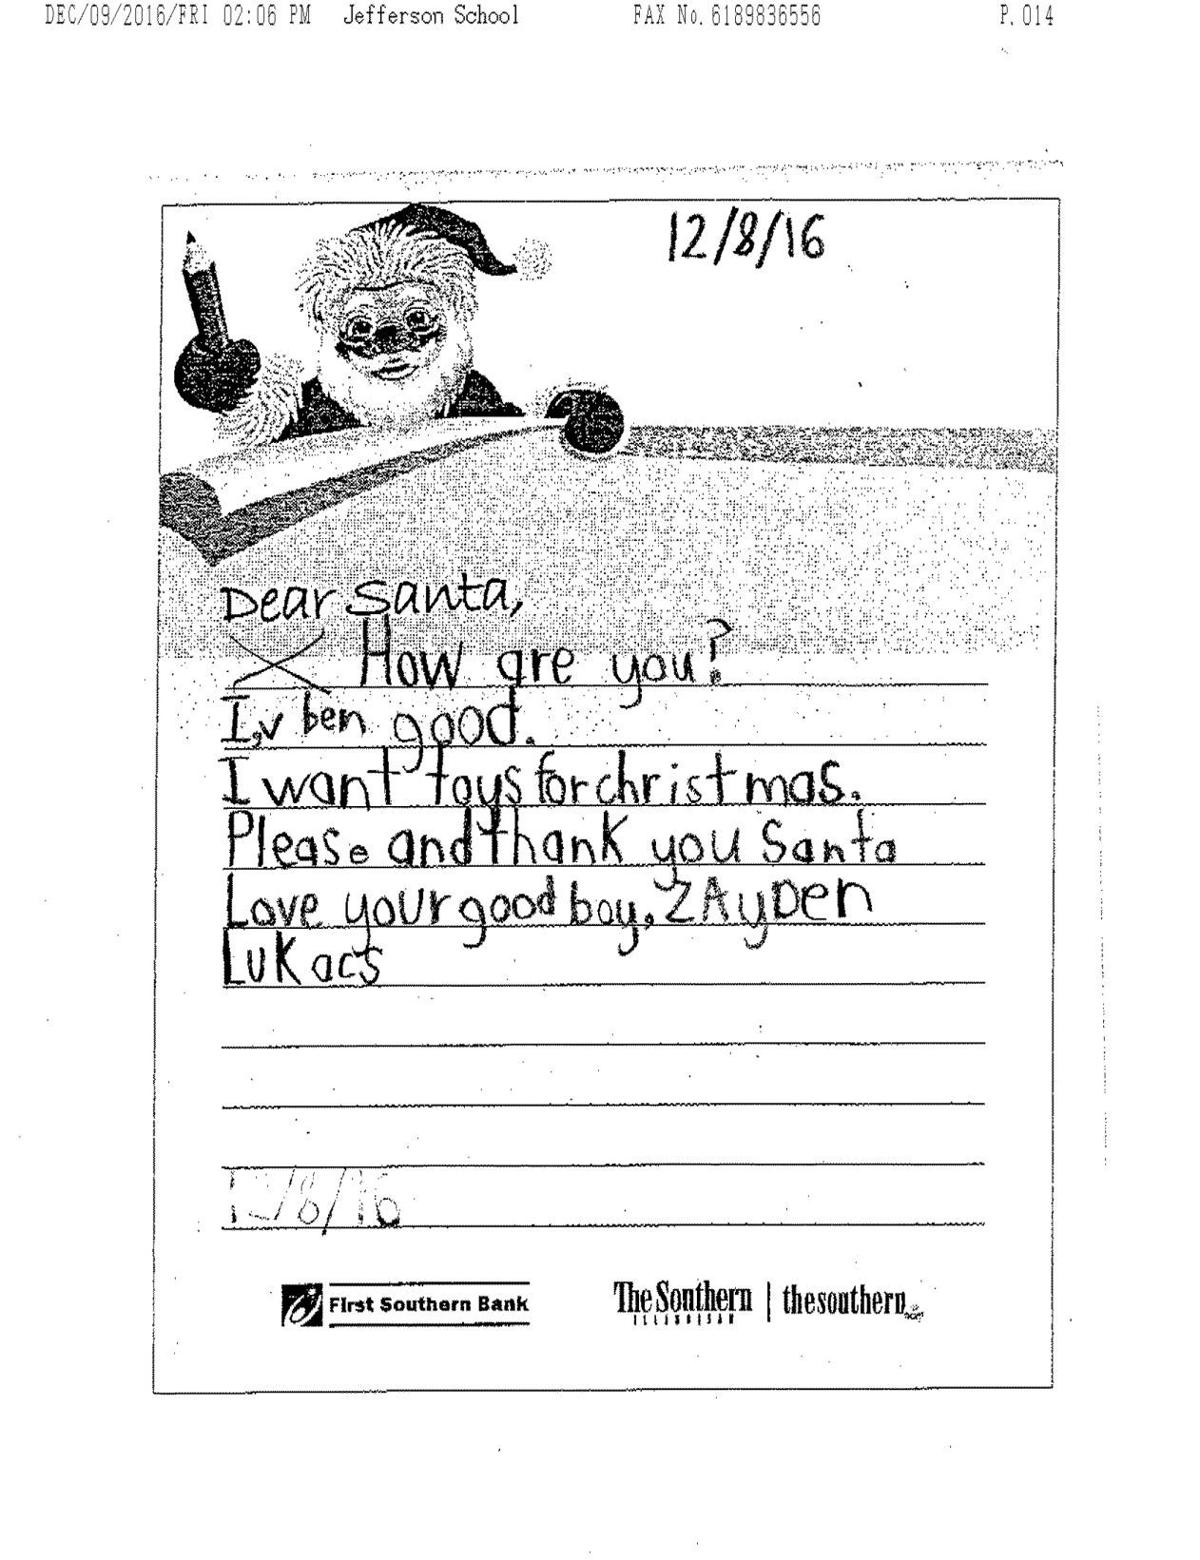 DEC/09/2016/FRI 02:06 PM Jefferson School FAX No. 6189836556 P. 014
12/8/16
Dear Santa,
How are you?
I,v ben good.
I want toys for christmas.
Please and thank you Santa
Love your good boy, ZAyDen
Lukacs
12/8/16
First Southern Bank
The Southern | thesouthern
ILLINOISAN